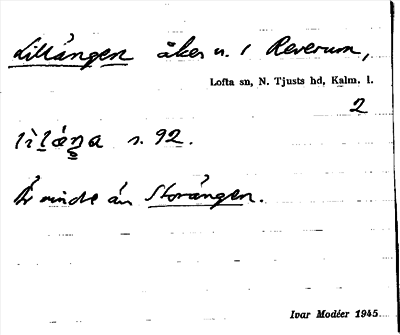 Lillängen åker n. i Reverum,
Lofta sn, N. Tjusts hd, Kalm. l.
2
s. 92.
Är mindre än Storängen.
Ivar Modéer 1945